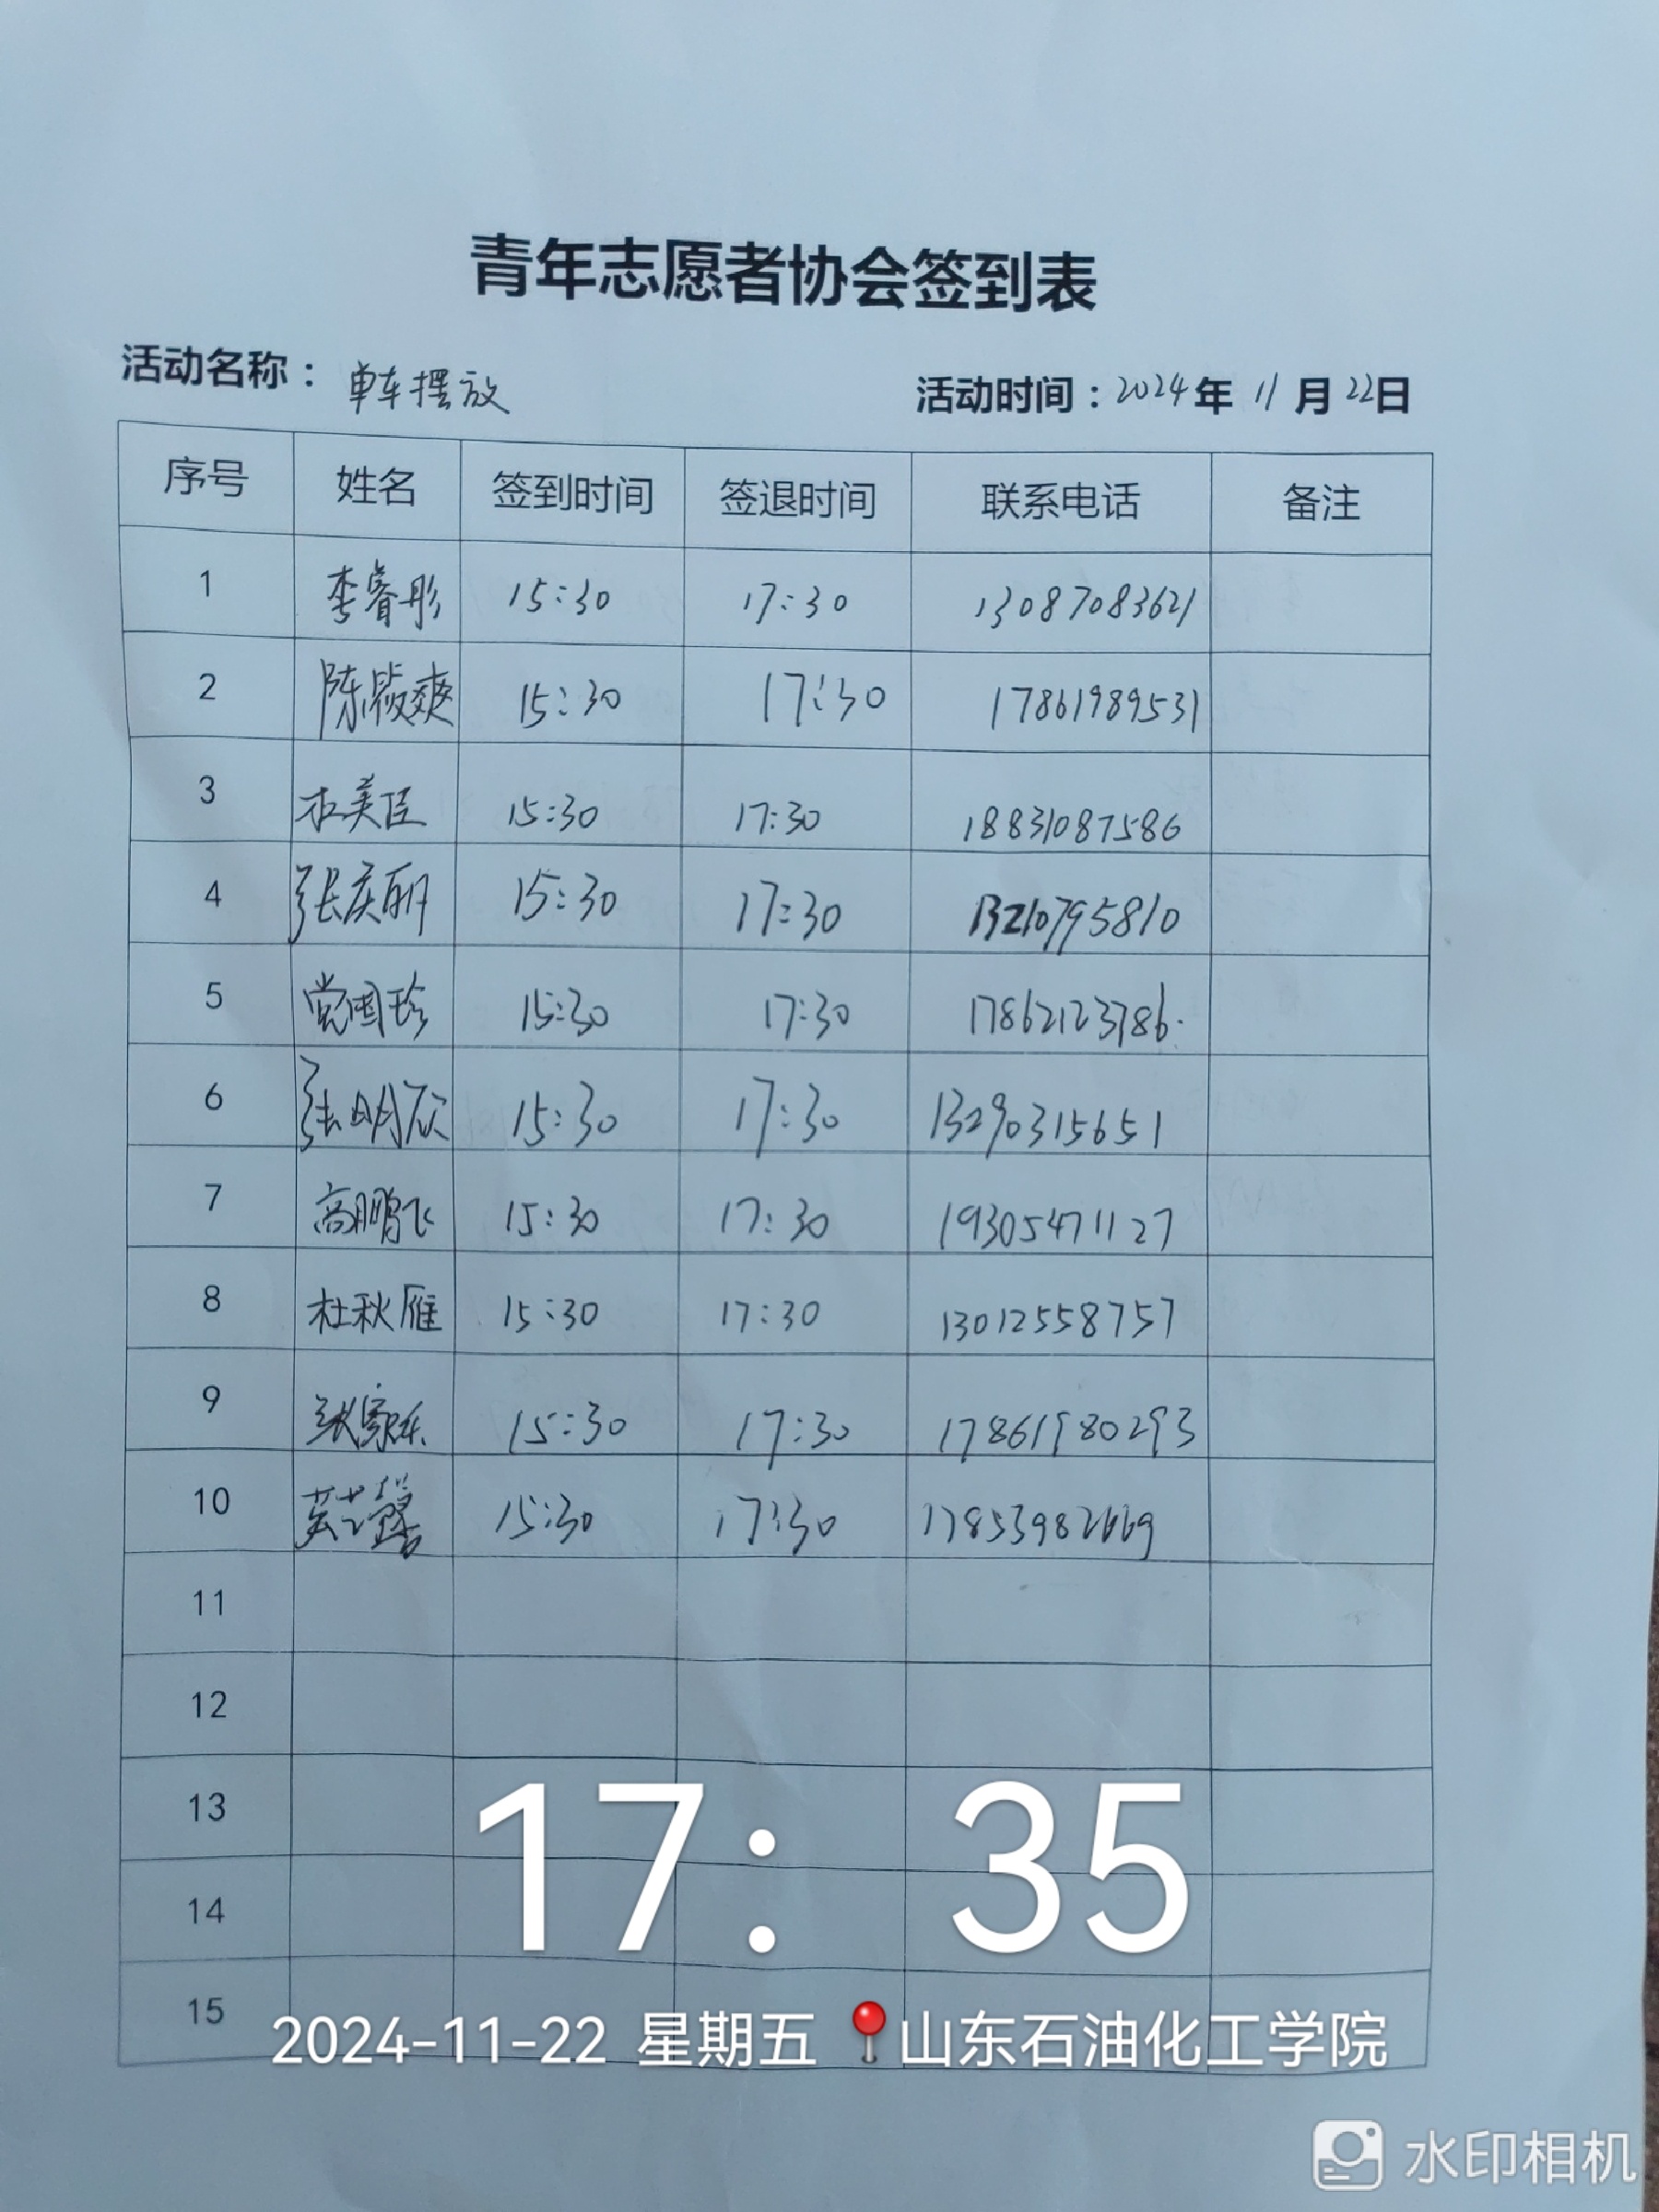 青年志愿者协会签到表
活动名称：单车摆放 活动时间：2024年11月22日
序号 姓名 签到时间 签退时间 联系电话 备注
1 李睿彤 15:30 17:30 13087083621
2 陈筱爽 15:30 17:30 17861989531
3 杜美臣 15:30 17:30 18831087586
4 张庆丽 15:30 17:30 13210795810
5 党国珍 15:30 17:30 17862123786
6 张明欣 15:30 17:30 13290315651
7 高鹏飞 15:30 17:30 19305471127
8 杜秋雁 15:30 17:30 13012558757
9 15:30 17:30 17861980293
10 15:30 17:30
11
12
13
14
15
17:35
2024-11-22 星期五 山东石油化工学院
水印相机